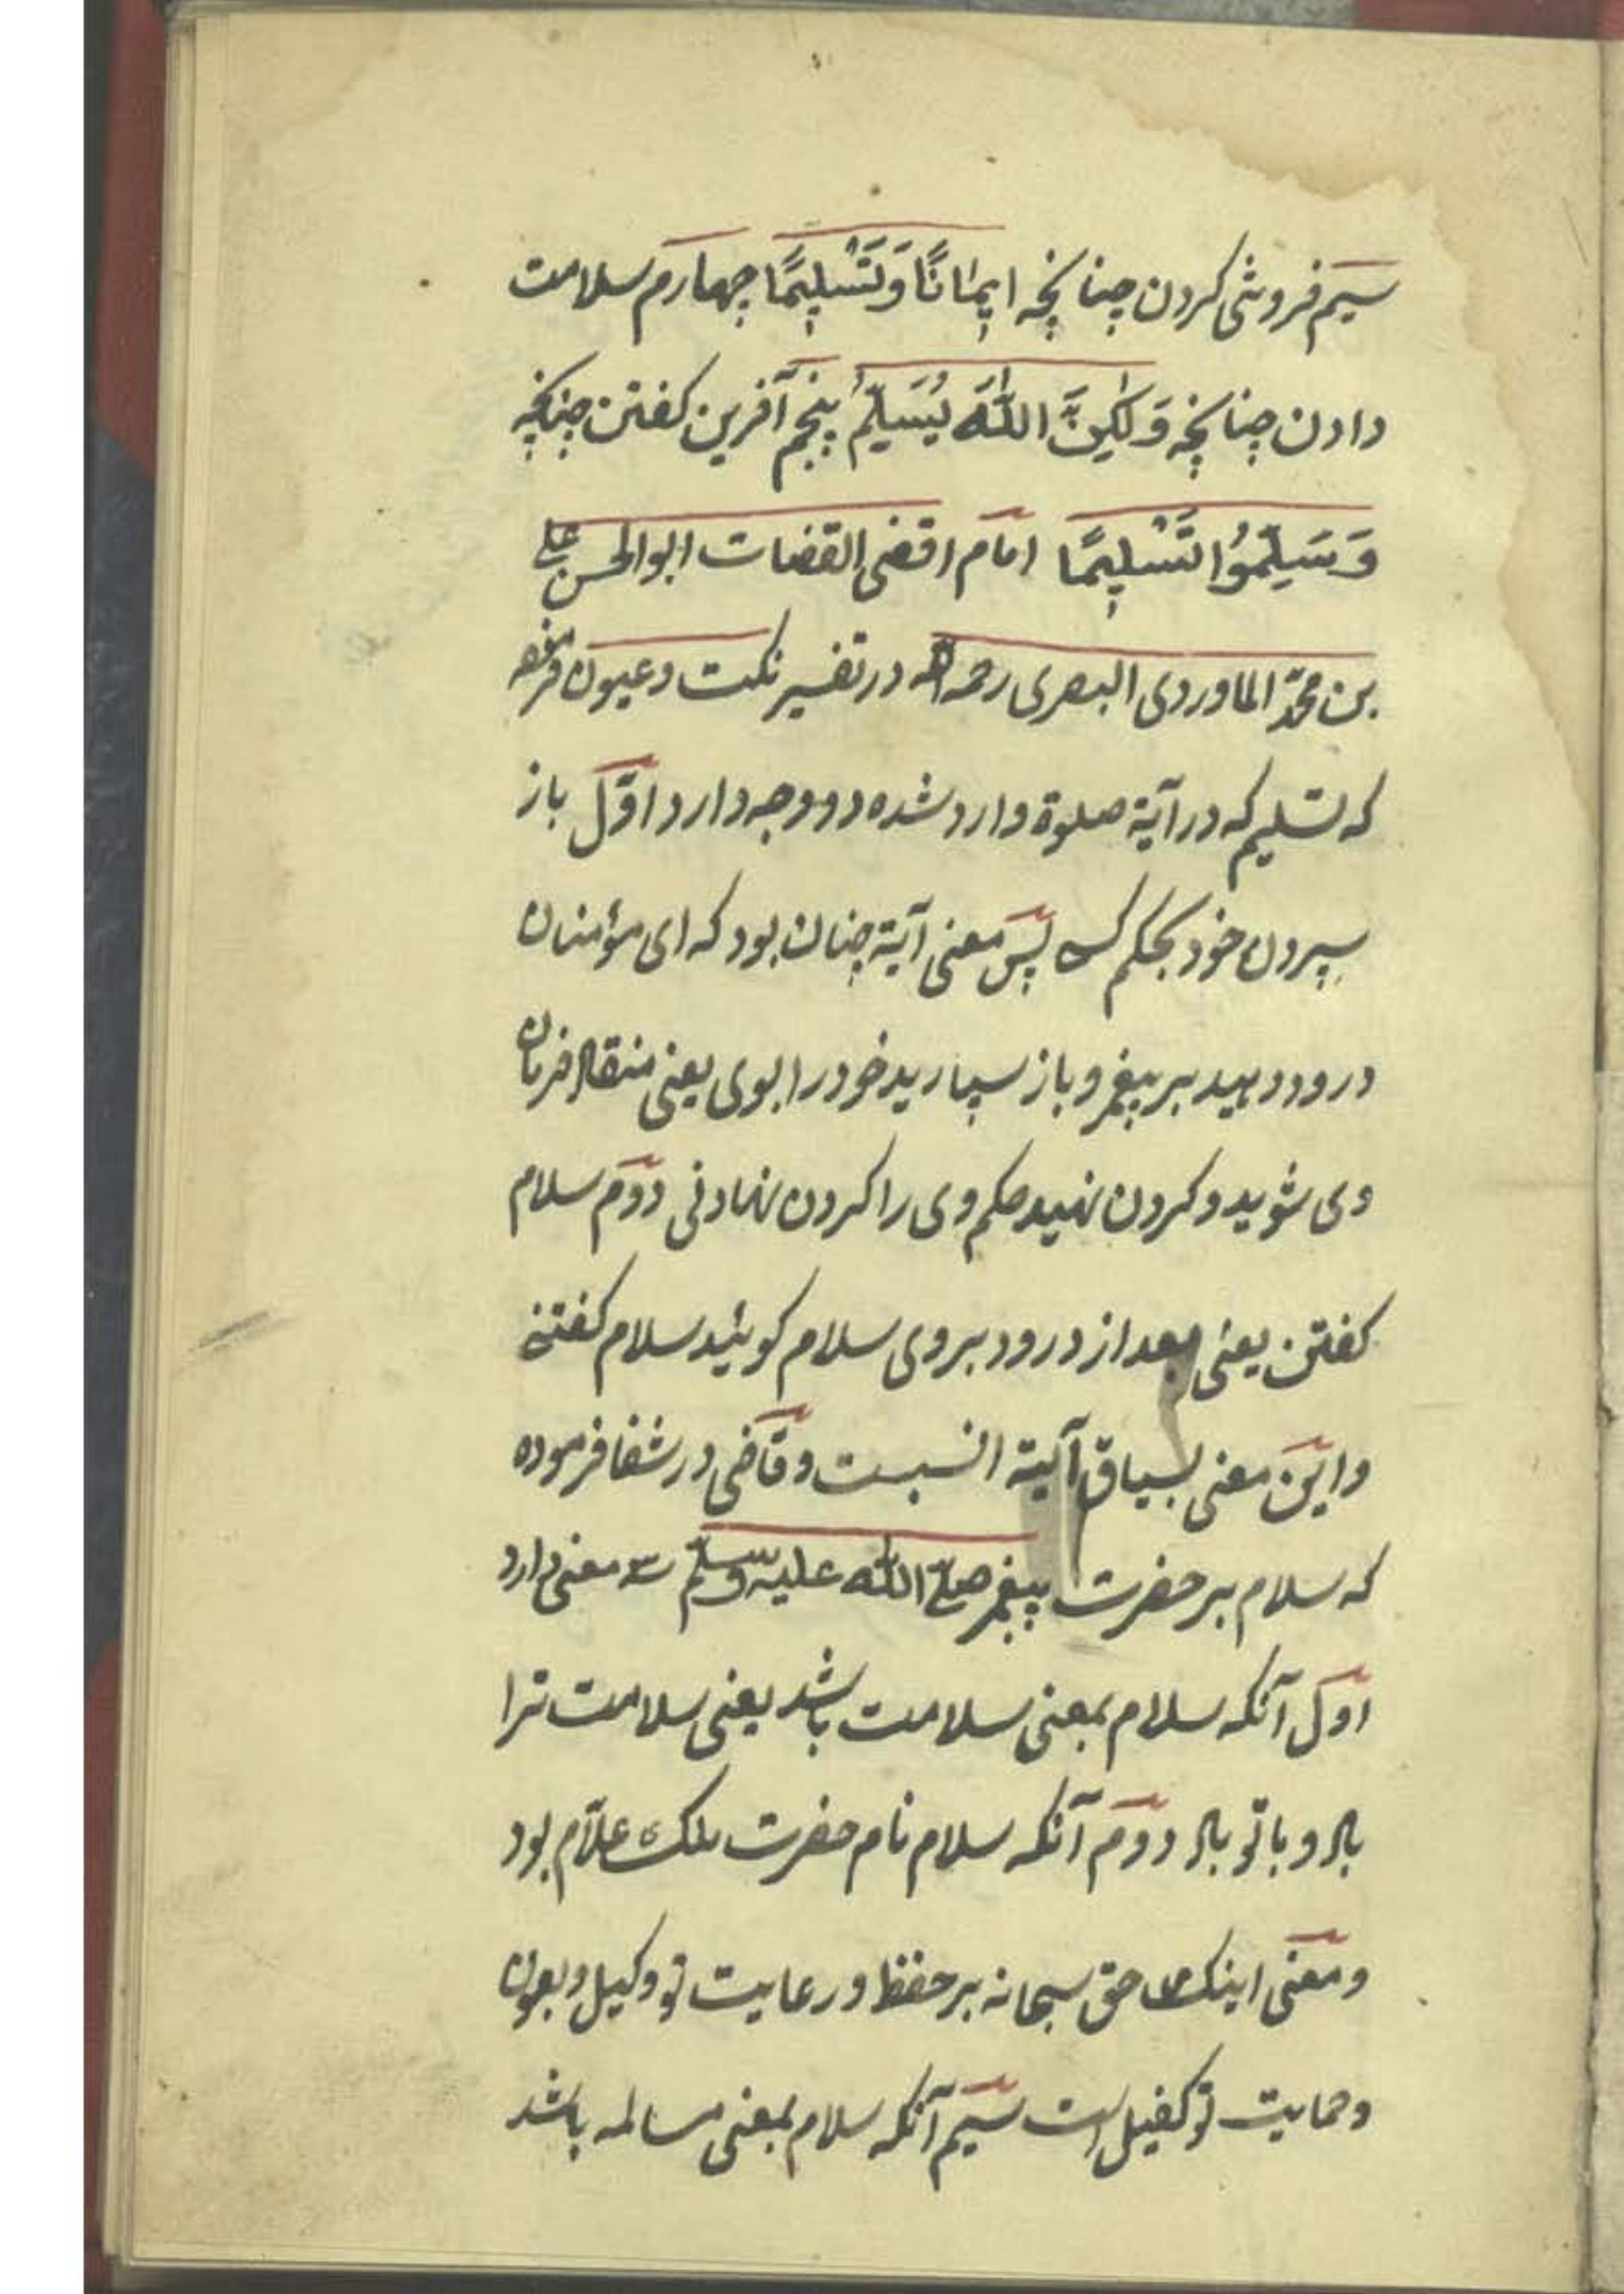 سیم فروشی کردن چنانچه ایمٰانًا وَتَسْلِیمًا چهارم سلامت
دادن چنانچه وَلٰکِنَّ اللّٰهَ یُسَلِّمُ پنجم آفرین کفتن چنانچه
وَسَلِّمُوُا تَسْلِیمًا امام اقضی القضات ابوالحسن علی
بن محمّد الماوردی البصری رحمه الله در تفسیر نکت و عیون فرموده
که تسلیم که در آیة صلوة وارد شده دو وجه دارد اوّل باز
سپردن خود بحکم کسی پس معنی آیة چنان بود که ای مؤمنان
درود دهید بر پیغمبر و باز سپارید خود را بوی یعنی منقاد فرمان
وی شوید و کردن نهید حکم وی را کردن نهادنی دوّم سلام
کفتن یعنی بعد از درود بر وی سلام کوئید سلام کفتنی
و این معنی بسیاق آیة انسبست و قاضی در شفا فرموده
که سلام بر حضرت پیغمبر صلّی اللّٰه علیه وسلّم سه معنی دارد
اوّل آنکه سلام بمعنی سلامت باشد یعنی سلامت ترا
باد و با تو باد دوّم آنکه سلام نام حضرت ملک علاّم بود
و معنی اینکه حق سبحانه بر حفظ و رعایت تو وکیل و بعون
و حمایت تو کفیل است سیم آنکه سلام بمعنی مسالمه باشد